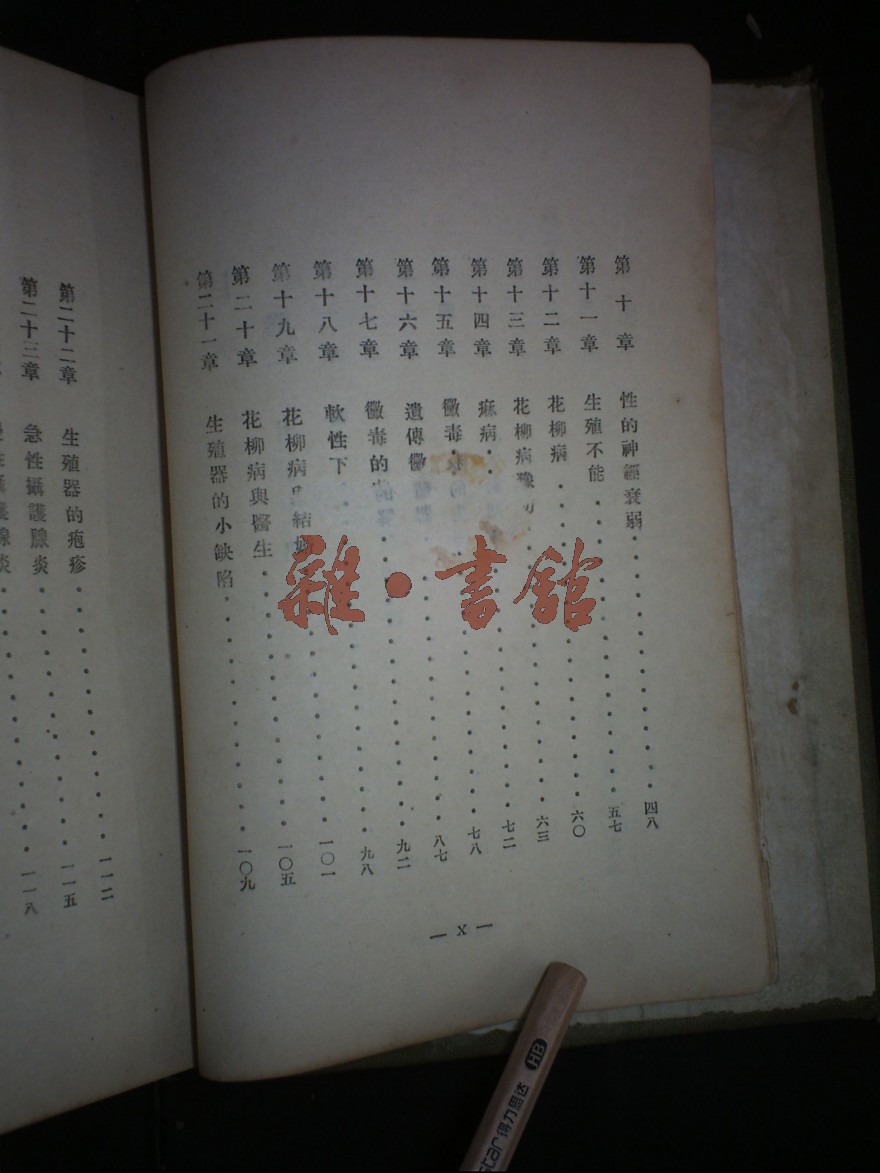 第十章 性的神經衰弱 四八
第十一章 生殖不能 五七
第十二章 花柳病 六〇
第十三章 花柳病豫防 六三
第十四章 痳病 七二
第十五章 黴毒 七八
第十六章 遺傳黴 八七
第十七章 黴毒的 九二
第十八章 軟性下 九八
第十九章 花柳病與結婚 一〇一
第二十章 花柳病與醫生 一〇五
第二十一章 生殖器的小缺陷 一〇九
— X —
第二十二章 生殖器的疱疹 一一二
第二十三章 急性攝護腺炎 一一五
一一八
雜·書館
HB
star得力思达